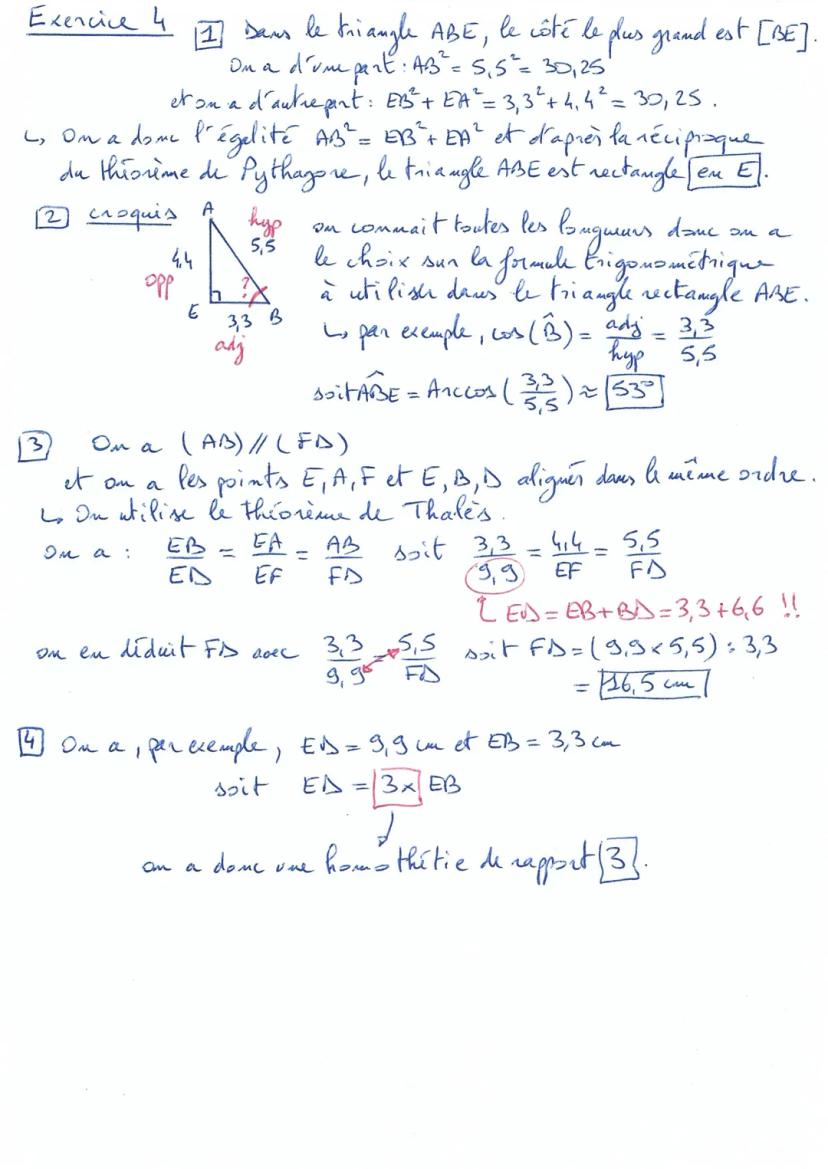 Exercice 4 1 Dans le triangle ABE, le côté le plus grand est [BE].
On a d'une part : AB² = 5,5² = 30,25
et on a d'autre part : EB² + EA² = 3,3² + 4,4² = 30,25.
↳ On a donc l'égalité AB² = EB² + EA² et d'après la réciproque
du théorème de Pythagore, le triangle ABE est rectangle en E.
2 croquis
A
hyp
5,5
4,4
opp
?
E
3,3
B
adj
on connait toutes les longueurs donc on a
le choix sur la formule trigonométrique
à utiliser dans le triangle rectangle ABE.
↳ par exemple, cos(B̂) = adj/hyp = 3,3/5,5
soit ABE^ = Arccos(3,3/5,5) ≈ 53°
3 On a (AB) // (FD)
et on a les points E, A, F et E, B, D alignés dans le même ordre.
↳ On utilise le théorème de Thalès.
On a : EB/ED = EA/EF = AB/FD soit 3,3/9,9 = 4,4/EF = 5,5/FD
ED = EB + BD = 3,3 + 6,6 !!
on en déduit FD avec 3,3/9,9 = 5,5/FD soit FD = (9,9 × 5,5) : 3,3
= 16,5 cm
4 On a, par exemple, ED = 9,9 cm et EB = 3,3 cm
soit ED = 3× EB
on a donc une homothétie de rapport 3.